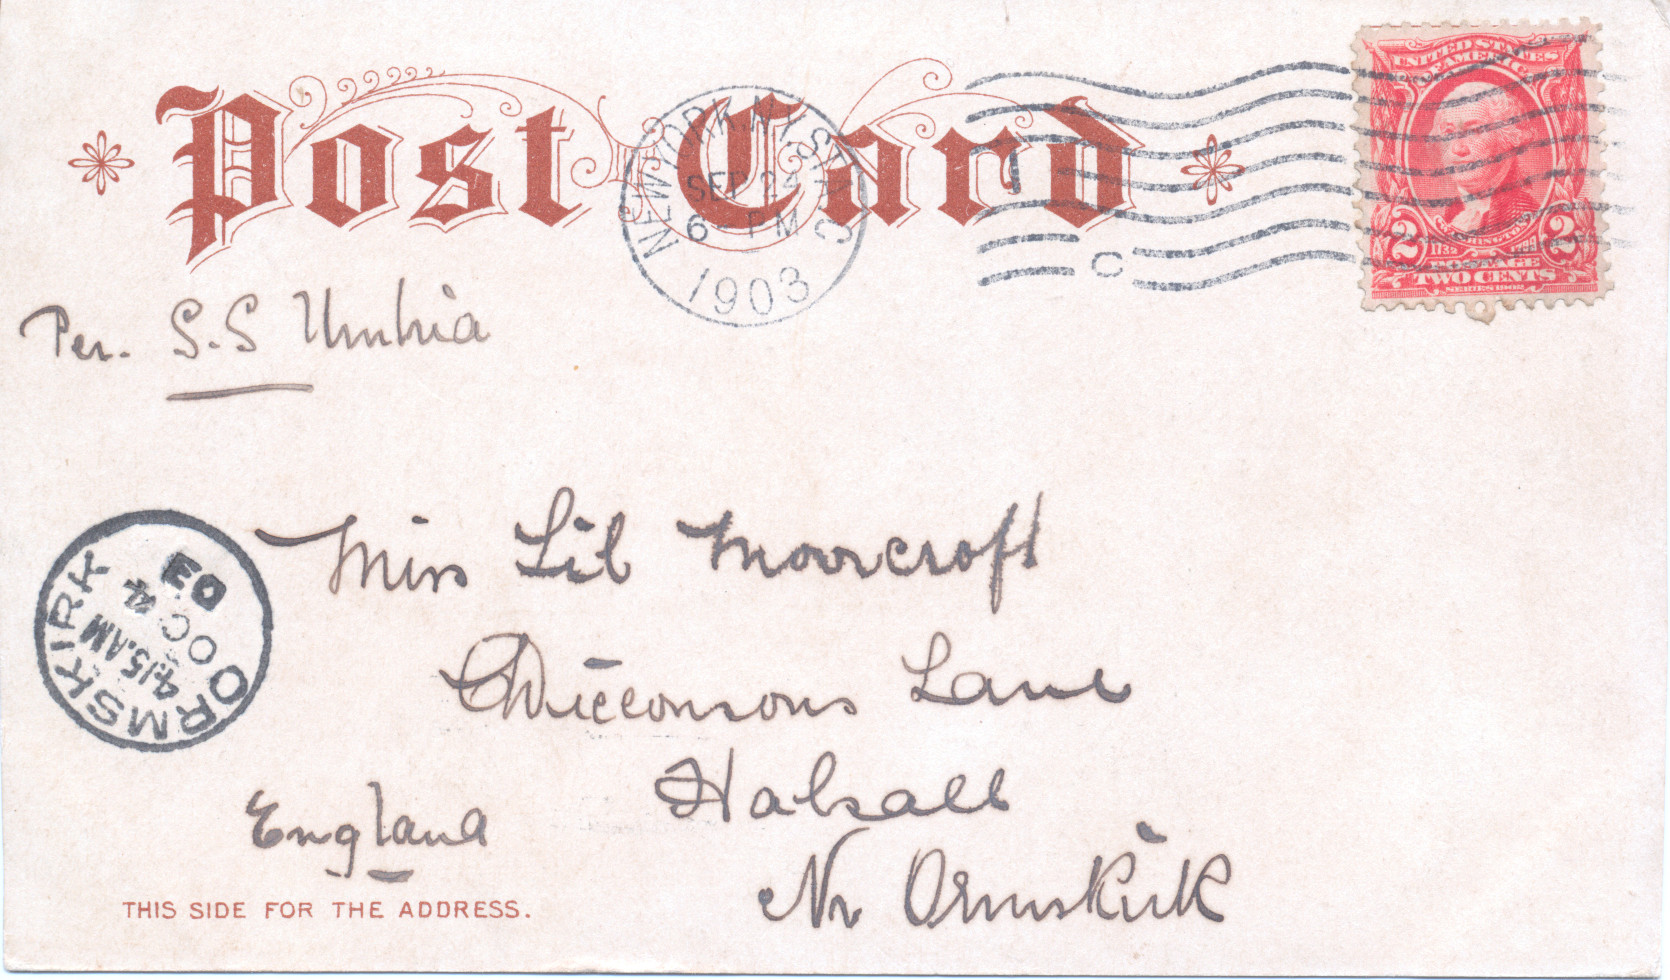 Post Card
NEW YORK, N.Y. STA. C
SEP 24
6- PM
1903
1
C
UNITED STATES
OF AMERICA
2 2
WASHINGTON
1732 1799
POSTAGE
TWO CENTS
SERIES 1902
Per. S.S Umbria
Miss Lil Moorcroft
Wicconsons Lane
Halsall
Nr Ormskirk
England
ORMSKIRK
4.15.AM
OC 4
03
THIS SIDE FOR THE ADDRESS.